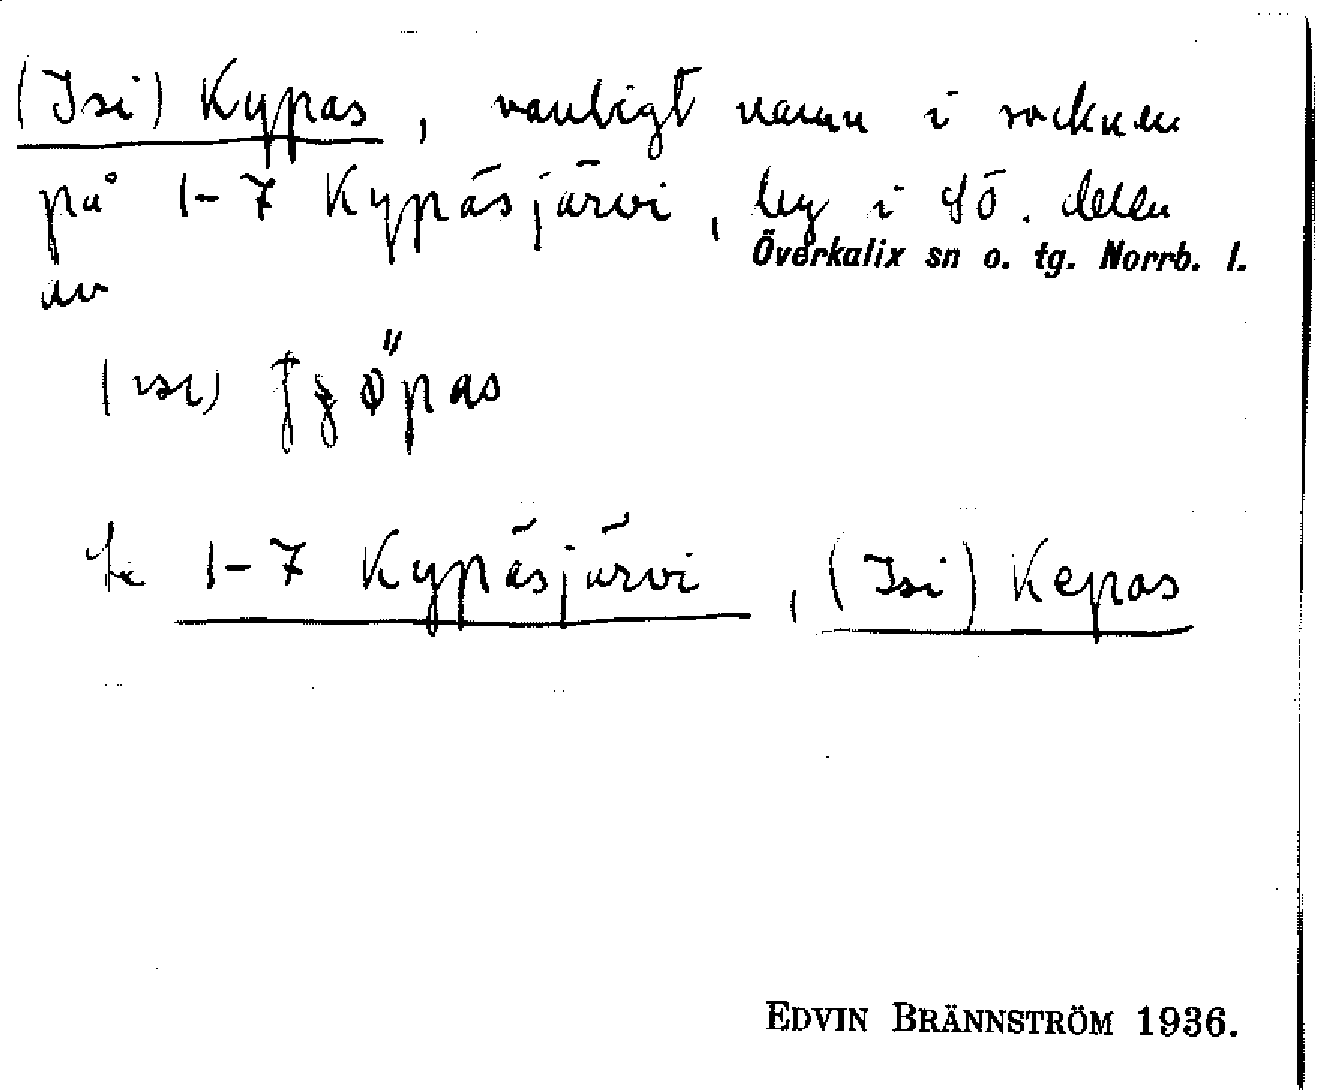 (Isi) Kypas, vanligt namn i socknen
på 1-7 Kypäsjärvi, by i SÖ. delen
Överkalix sn o. tg. Norrb. l.
av
(isi)
Se 1-7 Kypäsjärvi, (Isi) Kepas
EDVIN BRÄNNSTRÖM 1936.